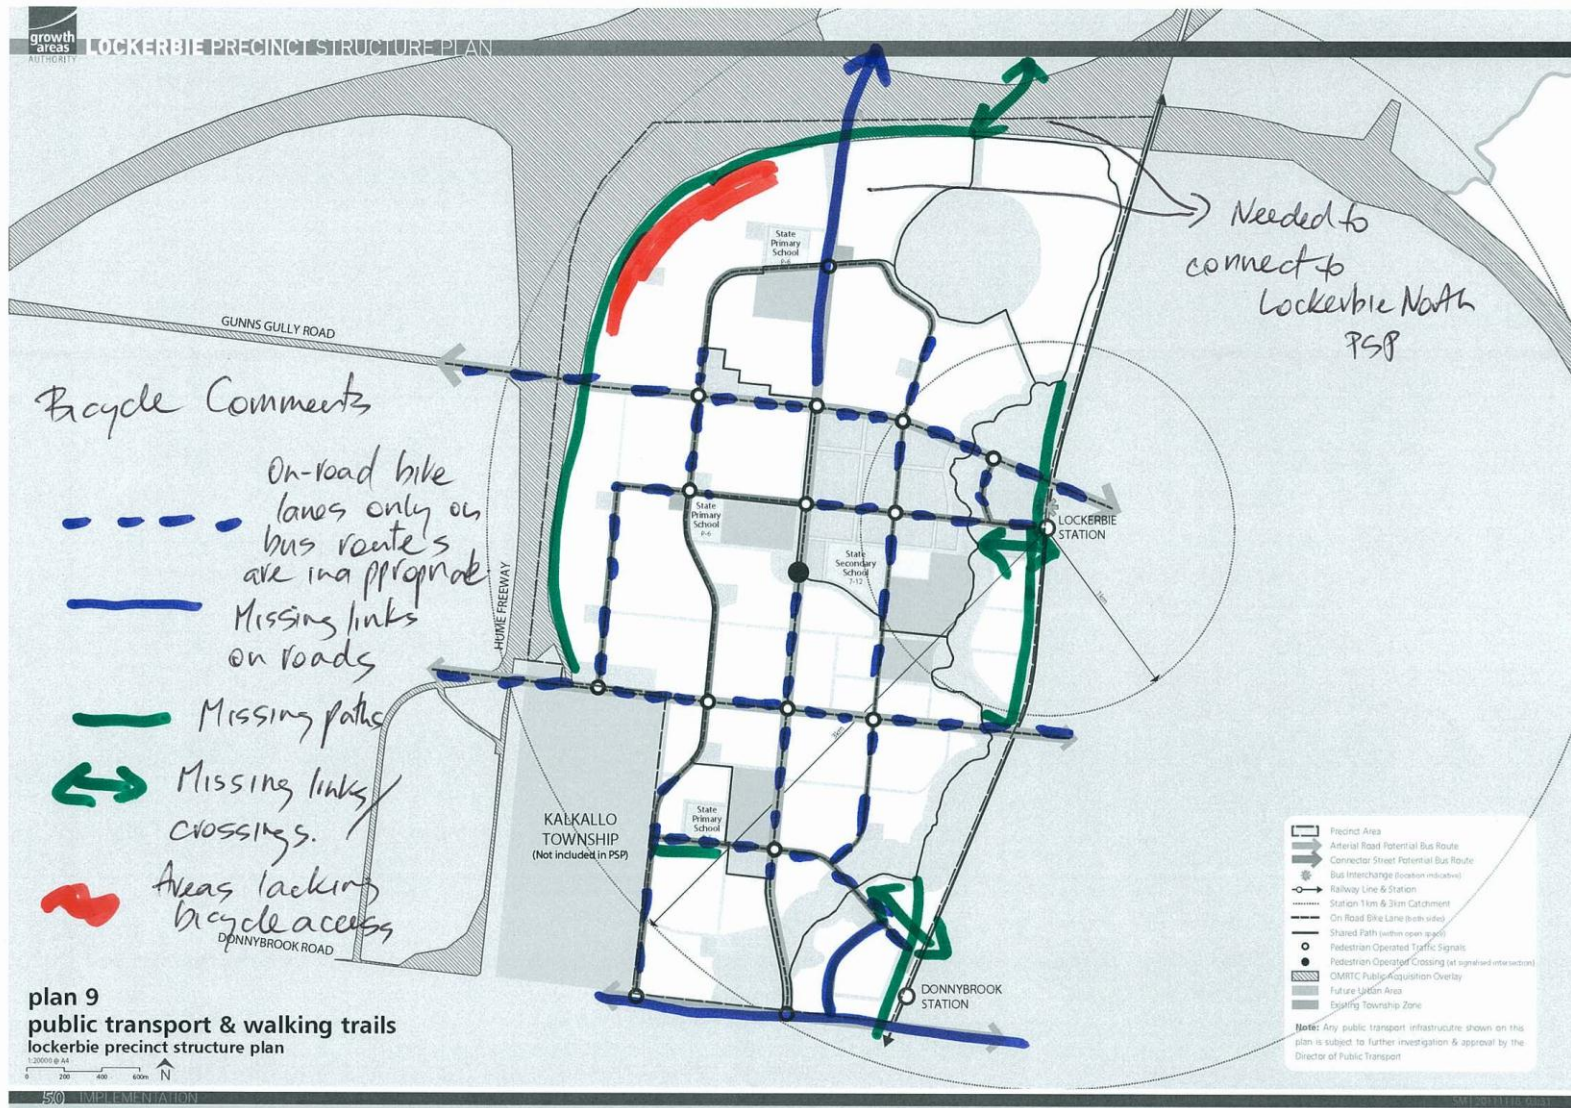 growth
areas
AUTHORITY
LOCKERBIE PRECINCT STRUCTURE PLAN
Needed to
connect to
Lockerbie North
PSP
State
Primary
School
P-6
GUNNS GULLY ROAD
Bicycle Comments
On-road bike
lanes only on
bus routes
are inappropriate
Missing links
on roads
Missing paths
Missing links/
crossings.
Areas lacking
bicycle access
HUME FREEWAY
State
Primary
School
P-6
State
Secondary
School
7-12
LOCKERBIE
STATION
1km
3km
KALKALLO
TOWNSHIP
(Not included in PSP)
State
Primary
School
DONNYBROOK ROAD
DONNYBROOK
STATION
Precinct Area
Arterial Road Potential Bus Route
Connector Street Potential Bus Route
Bus Interchange (location indicative)
Railway Line & Station
Station 1km & 3km Catchment
On Road Bike Lane (both sides)
Shared Path (within open space)
Pedestrian Operated Traffic Signals
Pedestrian Operated Crossing (at signalised intersection)
OMRTC Public Acquisition Overlay
Future Urban Area
Existing Township Zone
Note: Any public transport infrastrucutre shown on this
plan is subject to further investigation & approval by the
Director of Public Transport
plan 9
public transport & walking trails
lockerbie precinct structure plan
1:20000 @ A4
0 200 400 600m N
50 IMPLEMENTATION